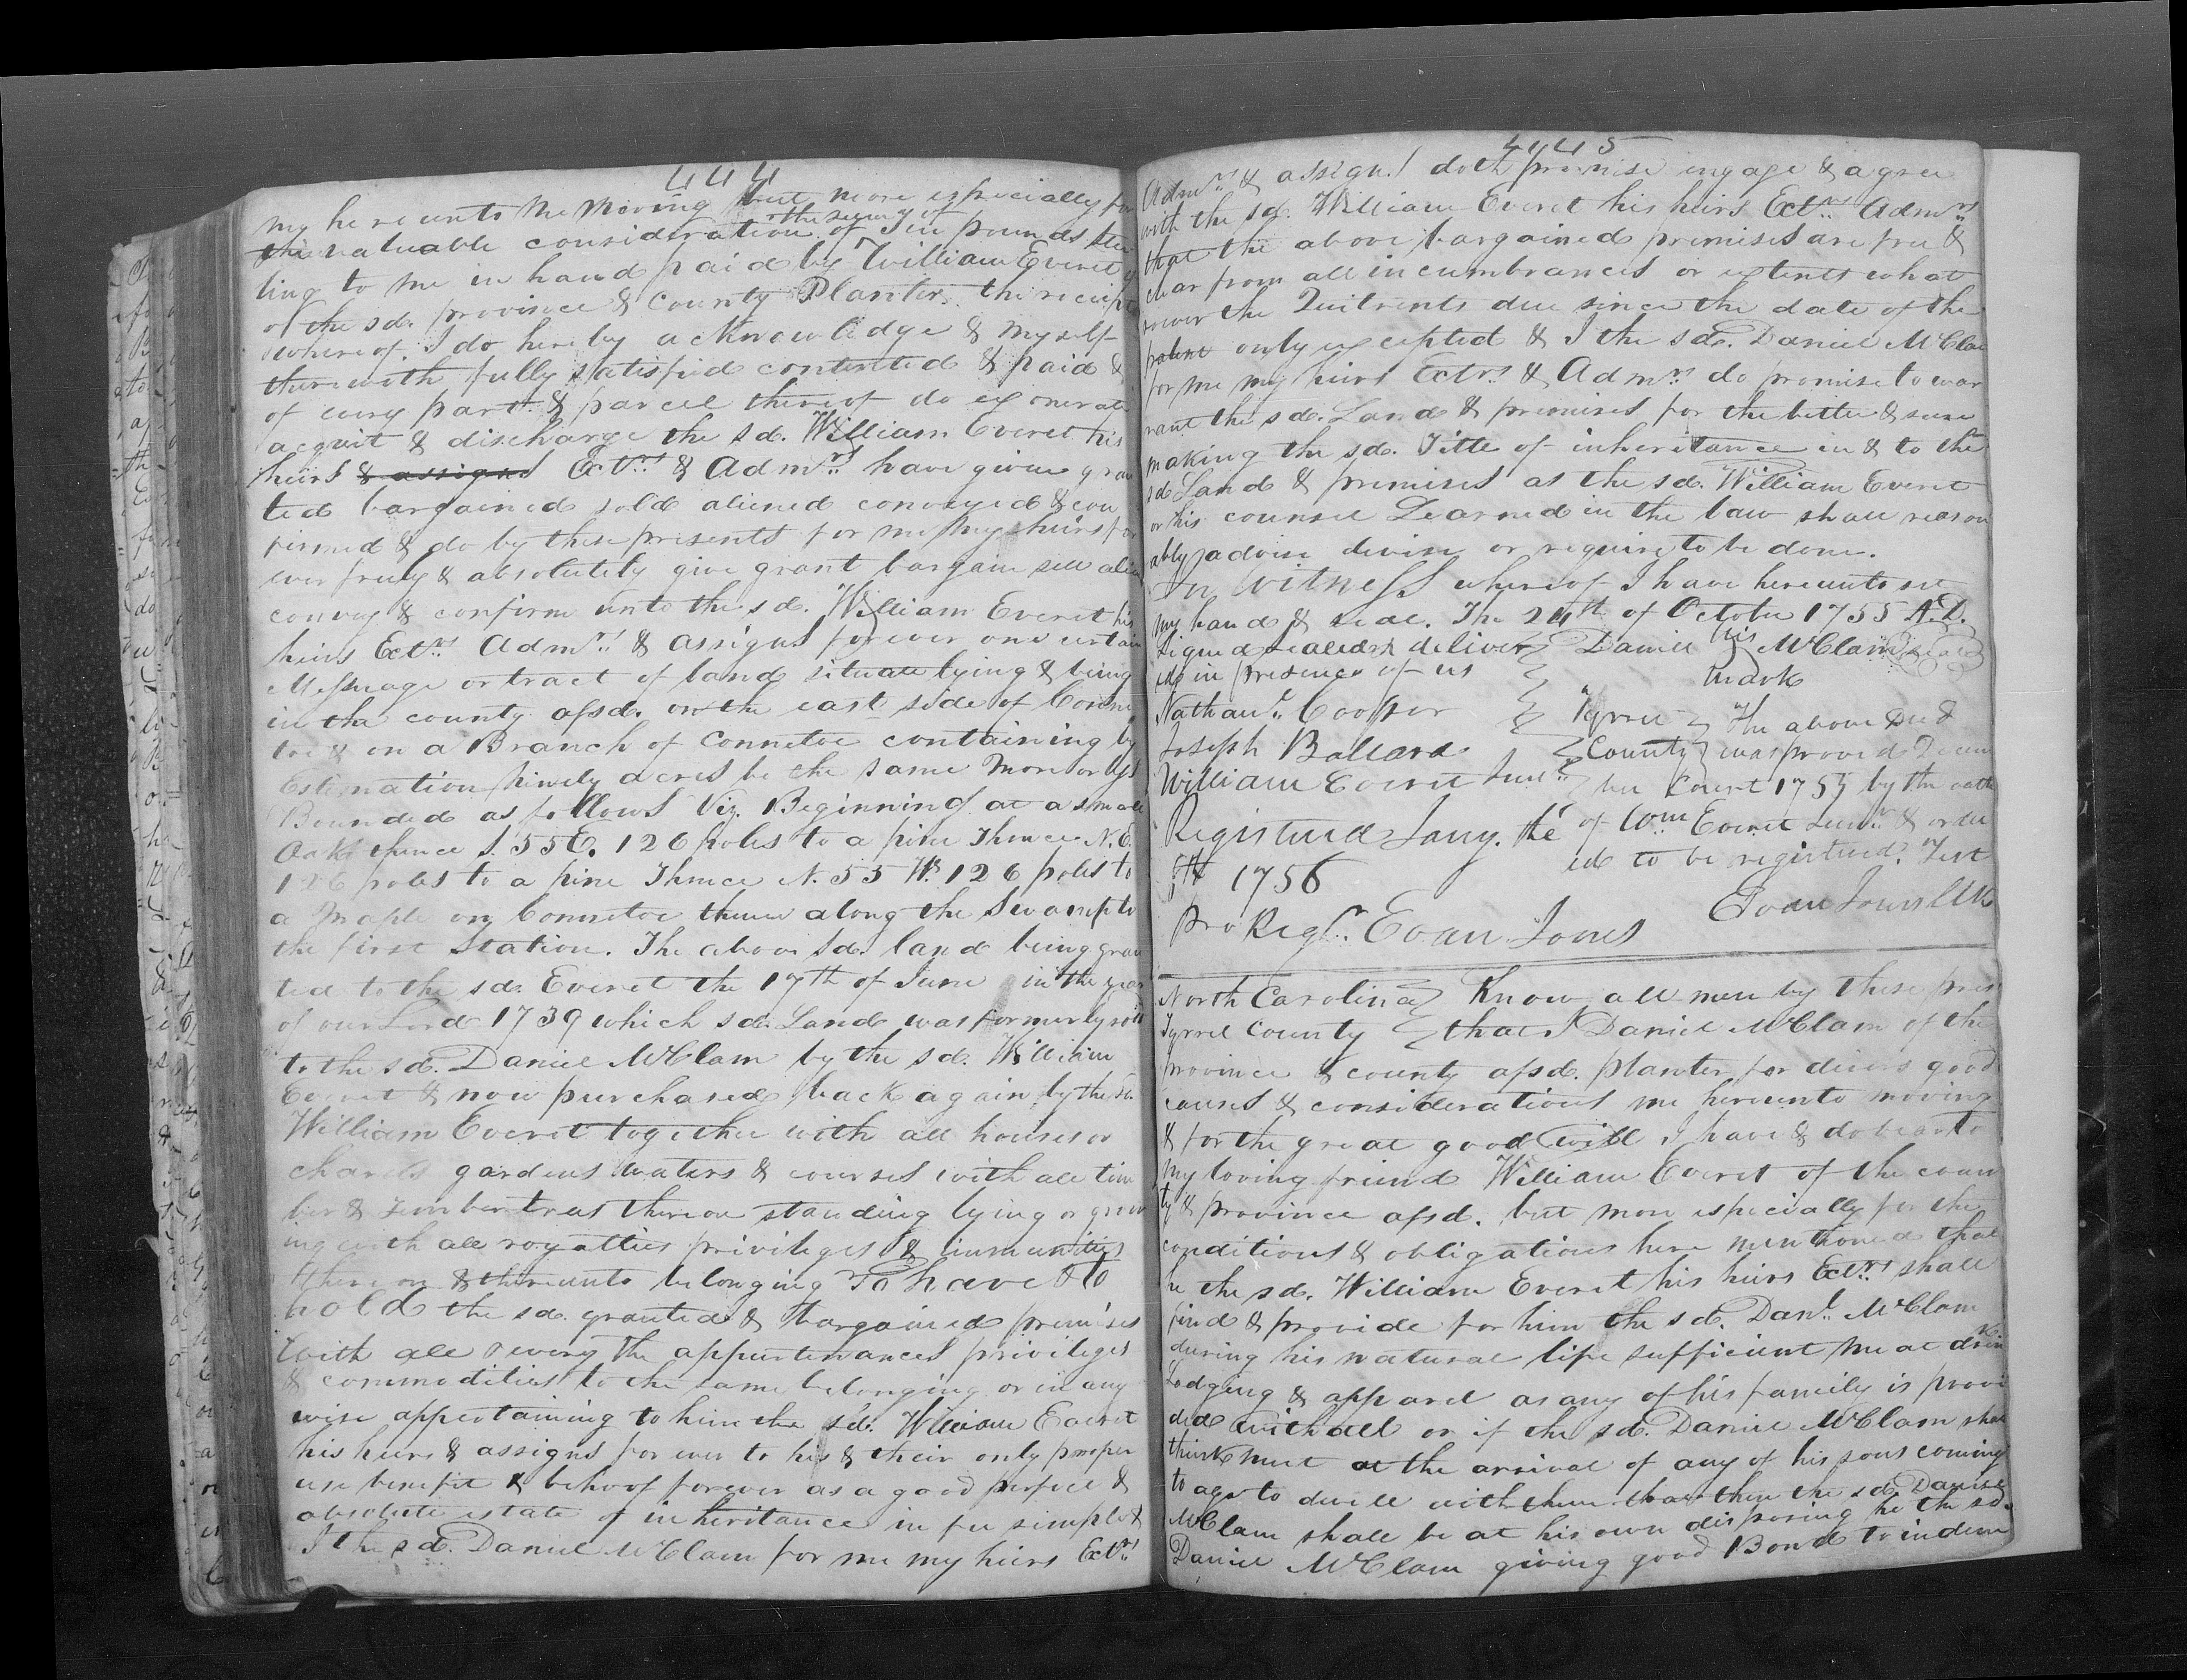 444
my hereunto me moving but more especially for
the valuable consideration of the sum of Ten pounds ster
ling to me in hand paid by William Everet
of the sd. province & county Planter the receipt
whereof I do hereby acknowledge & myself
therewith fully satisfied contented & paid &
of every part & parcel thereof do exonerate
acquit & discharge the sd. William Everet his
heirs & assigns Extrs. & Admrs. have given gran
ted bargained sold aliened conveyed & con
firmed & do by these presents for me my heirs for
ever freely & absolutely give grant bargain sell alien
convey & confirm unto the sd. William Everet his
heirs Extrs. Admrs. & assigns forever one certain
Messuage or tract of land situate lying & being
in the county afsd. on the east side of Conne
toe & on a Branch of Connetoe containing by
Estimation ninety acres be the same more or less
Bounded as follows Viz. Beginning at a small
Oak thence S. 55 E. 126 poles to a pine Thence N. E.
126 poles to a pine Thence N. 55 W. 126 poles to
a maple on Connetoe thence along the Swamp to
the first Station. The above sd. land being gran
ted to the sd. Everet the 17th of June in the year
of our Lord 1739 which sd. Land was formerly sold
to the sd. Daniel McClam by the sd. William
Everet & now purchased back again by the sd.
William Everet together with all houses or
chards gardens waters & courses with all tim
ber & timber trees thereon standing lying or grow
ing with all royalties privileges & immunities
thereon & thereunto belonging To have & to
hold the sd. granted & bargained premises
with all & every the appurtenances privileges
& commodities to the same belonging or in any
wise appertaining to him the sd. William Everet
his heirs & assigns for ever to his & their only proper
use benefit & behoof forever as a good perfect &
absolute estate of inheritance in fee simple &
I the sd. Daniel McClam for me my heirs Extrs.
445
Admrs. & assigns doth promise engage & agree
with the sd. William Everet his heirs Extrs. Admrs.
that the above bargained premises are free &
clear from all incumbrances or extents what
soever the Quitrents due since the date of the
patent only excepted & I the sd. Daniel McClam
for me my heirs Extrs. & Admrs. do promise to war
rant the sd. Land & premises for the better & sure
making the sd. Title of inheritance in & to the
sd Land & premises as the sd. William Everet
or his counsel Learned in the law shall reason
ably advise devise or require to be done.
In Witness whereof I have hereunto set
my hand & seal. The 24th of October 1755 A.D.
Signed Sealed & deliver Daniel his McClam Seal
ed in presence of us mark
Nathanl. Cooper Tyrrel The above deed
Joseph Ballard County was proved Decem
William Everet Junr. ber Court 1755 by the oath
Registered Jany. the of Wm Everet Junr. & order
6th 1756 ed to be registered. Test
pro Regr. Evan Jones Evan Jones Clk
North Carolina Know all men by these pres
Tyrrel County that I Daniel McClam of the
province & county afsd. planter for divers good
causes & considerations me hereunto moving
& for the great good will I have & do bear to
my loving friend William Everet of the coun
ty & province afsd. but more especially for the
conditions & obligations here mentioned that
he the sd. William Everet his heirs Extrs. shall
find & provide for him the sd. Danl. McClam
during his natural life sufficient meat drink
Lodging & apparel as any of his family is provi
ded withall or if the sd. Daniel McClam shall
think meet at the arrival of any of his sons coming
to age to dwell with them that then the sd. Daniel
McClam shall be at his own disposing he the sd.
Daniel McClam giving good Bond to indem